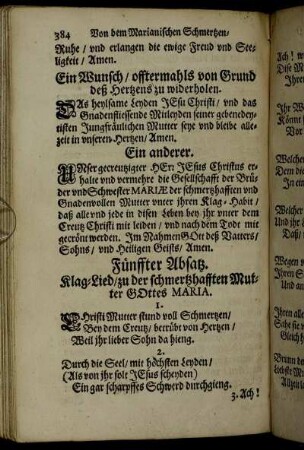 384 Von dem Marianischen Schmertzen/
Ruhe / vnd erlangen die ewige Freud vnd See-
ligkeit / Amen.
Ein Wunsch / offtermahls von Grund
deß Hertzens zu widerholen.
DAs heylsame Leyden JEsu Christi / vnd das
Gnadenfliessende Mitleyden seiner gebenedey-
nisten Jungfräulichen Mutter seye vnd bleibe alle-
zeit in vnseren Hertzen / Amen.
Ein anderer.
VNser gecreutzigter HErr JEsus Christus er-
halte vnd vermehre die Gesellschafft der Brü-
der vnd Schwester MARIÆ der schmertzhafften vnd
Gnadenvollen Mutter vnter ihren Klag-Habit /
daß alle vnd jede in disen Leben bey jhr vnter dem
Creutz Christi mit leiden / vnd nach dem Tode mit
gecrönt werden. Im Nahmen GOtt deß Vatters /
Sohns / vnd Heiligen Geists / Amen.
Fünffter Absatz.
Klag-Lied / zu der schmertzhafften Mut-
ter GOttes MARIA.
1.
CHristi Mutter stund voll Schmertzen /
Bey dem Creutz / betrübt von Hertzen /
Weil jhr lieber Sohn da hieng.
2.
Durch die Seel / mit höchsten Leyden /
(Als von jhr solt JEsus scheyden)
Ein gar scharpffes Schwerd durchgieng.
3. Ach!